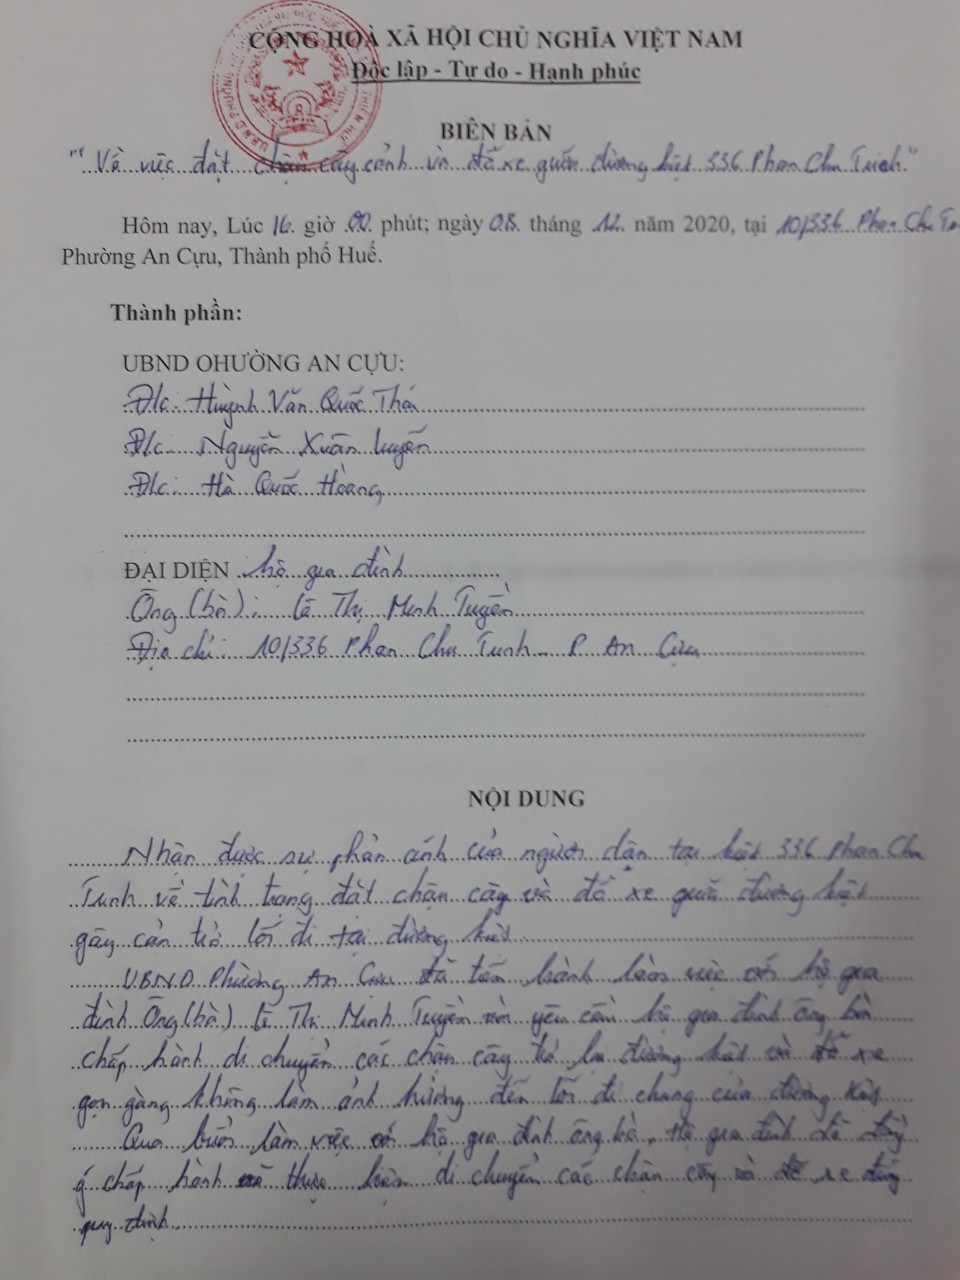 CỘNG HOÀ XÃ HỘI CHỦ NGHĨA VIỆT NAM
Độc lập - Tự do - Hạnh phúc
BIÊN BẢN
"Về việc đặt chậu cây cảnh và đỗ xe quán đường kiệt 336 Phan Chu Trinh"
Hôm nay, Lúc 16 giờ 00 phút; ngày 08 tháng 12 năm 2020, tại 10/336 Phan Chu
Phường An Cựu, Thành phố Huế.
Thành phần:
UBND OHƯỜNG AN CỰU:
Đ/c: Huỳnh Văn Quốc
Đ/c: Nguyễn Xuân
Đ/c: Hà Quốc Hoàng
ĐẠI DIỆN hộ gia đình
Ông (bà): Lê Thị Minh Tuyền
Địa chỉ: 10/336 Phan Chu Trinh - P An Cựu
NỘI DUNG
Nhận được sự phản ánh của người dân tại kiệt 336 Phan Chu
Trinh về tình trạng đặt chậu cây và đỗ xe đường kiệt
gây cản trở lối đi tại đường kiệt
UBND Phường An Cựu đã tiến hành làm việc với hộ gia
đình Ông (bà) Lê Thị Minh Tuyền và yêu cầu hộ gia đình ông bà
chấp hành di chuyển các chậu cây trả lại đường kiệt và để xe
gọn gàng không làm ảnh hưởng đến lối đi chung của đường kiệt
Qua buổi làm việc với hộ gia đình ông bà, Hộ gia đình đã đồng
ý chấp hành và thực hiện di chuyển các chậu cây và để xe đúng
quy định.